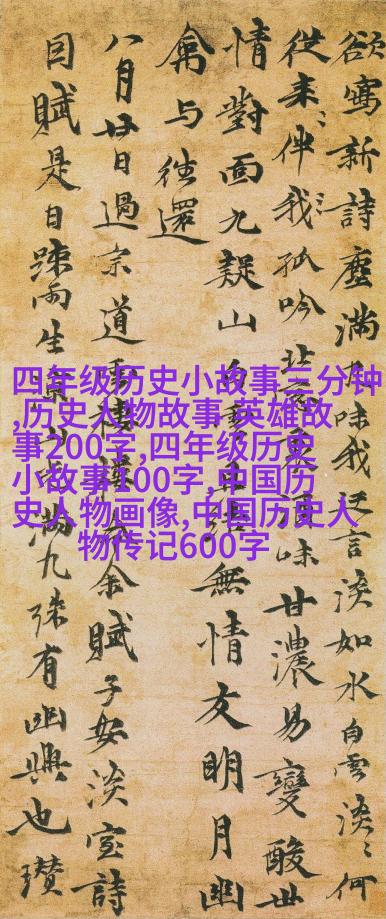 欲寫新詩塵滿味我言淡如水白雲淡淡何
從来伴我孤吟味甘濃易變酸世
情對面九疑山無情友明月幽
禽与往還
八月廿日過宗道余賦子安淡室詩
因賦是日疎雨生滿九殊有幽興也瓚
四年级历史小故事三分钟
,历史人物故事 英雄故
事200字,四年级历史
小故事100字,中国历
史人物画像,中国历史人
物传记600字